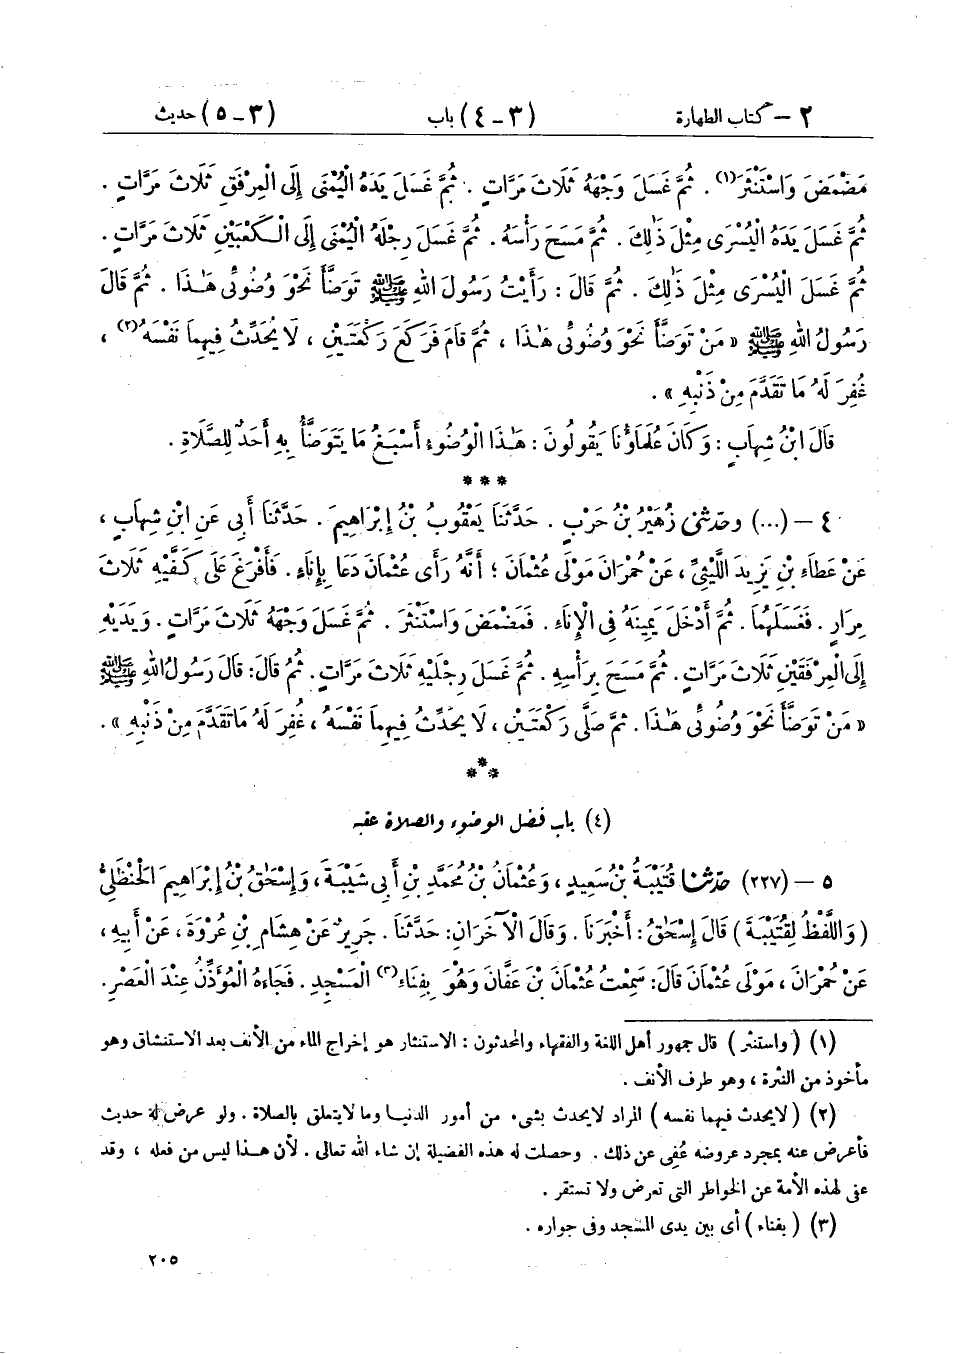 ٢ – كتاب الطهارة (٣ – ٤) باب (٣ – ٥) حديث
مَضْمَضَ وَاسْتَنْثَرَ(١) . ثُمَّ غَسَلَ وَجْهَهُ ثَلَاثَ مَرَّاتٍ . ثُمَّ غَسَلَ يَدَهُ الْيُمْنَى إِلَى الْمِرْفَقِ ثَلَاثَ مَرَّاتٍ .
ثُمَّ غَسَلَ يَدَهُ الْيُسْرَى مِثْلَ ذَٰلِكَ . ثُمَّ مَسَحَ رَأْسَهُ . ثُمَّ غَسَلَ رِجْلَهُ الْيُمْنَى إِلَى الْكَعْبَيْنِ ثَلَاثَ مَرَّاتٍ .
ثُمَّ غَسَلَ الْيُسْرَى مِثْلَ ذَٰلِكَ . ثُمَّ قَالَ : رَأَيْتُ رَسُولَ اللهِ ﷺ تَوَضَّأَ نَحْوَ وُضُوئِى هَٰذَا . ثُمَّ قَالَ
رَسُولُ اللهِ ﷺ « مَنْ تَوَضَّأَ نَحْوَ وُضُوئِى هَٰذَا ، ثُمَّ قَامَ فَرَكَعَ رَكْعَتَيْنِ ، لَا يُحَدِّثُ فِيهِمَا نَفْسَهُ(٢) ،
غُفِرَ لَهُ مَا تَقَدَّمَ مِنْ ذَنْبِهِ » .
قَالَ ابْنُ شِهَابٍ : وَكَانَ عُلَمَاؤُنَا يَقُولُونَ : هَٰذَا الْوُضُوءُ أَسْبَغُ مَا يَتَوَضَّأُ بِهِ أَحَدٌ لِلصَّلَاةِ .
* * *
٤ – (...) وحدثنى زُهَيْرُ بْنُ حَرْبٍ . حَدَّثَنَا يَعْقُوبُ بْنُ إِبْرَاهِيمَ . حَدَّثَنَا أَبِى عَنِ ابْنِ شِهَابٍ ،
عَنْ عَطَاءِ بْنِ يَزِيدَ اللَّيْثِىِّ ، عَنْ حُمْرَانَ مَوْلَى عُثْمَانَ ؛ أَنَّهُ رَأَى عُثْمَانَ دَعَا بِإِنَاءٍ . فَأَفْرَغَ عَلَى كَفَّيْهِ ثَلَاثَ
مِرَارٍ . فَغَسَلَهُمَا . ثُمَّ أَدْخَلَ يَمِينَهُ فِى الْإِنَاءِ . فَمَضْمَضَ وَاسْتَنْثَرَ . ثُمَّ غَسَلَ وَجْهَهُ ثَلَاثَ مَرَّاتٍ . وَيَدَيْهِ
إِلَى الْمِرْفَقَيْنِ ثَلَاثَ مَرَّاتٍ . ثُمَّ مَسَحَ بِرَأْسِهِ . ثُمَّ غَسَلَ رِجْلَيْهِ ثَلَاثَ مَرَّاتٍ . ثُمَّ قَالَ : قَالَ رَسُولُ اللهِ ﷺ
« مَنْ تَوَضَّأَ نَحْوَ وُضُوئِى هَٰذَا . ثُمَّ صَلَّى رَكْعَتَيْنِ ، لَا يُحَدِّثُ فِيهِمَا نَفْسَهُ ، غُفِرَ لَهُ مَا تَقَدَّمَ مِنْ ذَنْبِهِ » .
* * *
(٤) باب فضل الوضوء والصلاة عقبه
٥ – (٢٢٧) حدثنا قُتَيْبَةُ بْنُ سَعِيدٍ ، وَعُثْمَانُ بْنُ مُحَمَّدِ بْنِ أَبِى شَيْبَةَ ، وَإِسْحَٰقُ بْنُ إِبْرَاهِيمَ الْحَنْظَلِىُّ
( وَاللَّفْظُ لِقُتَيْبَةَ ) قَالَ إِسْحَٰقُ : أَخْبَرَنَا . وَقَالَ الْآخَرَانِ : حَدَّثَنَا . جَرِيرٌ عَنْ هِشَامِ بْنِ عُرْوَةَ ، عَنْ أَبِيهِ ،
عَنْ حُمْرَانَ ، مَوْلَى عُثْمَانَ قَالَ : سَمِعْتُ عُثْمَانَ بْنَ عَفَّانَ وَهُوَ بِفِنَاءِ(٣) الْمَسْجِدِ . فَجَاءَهُ الْمُؤَذِّنُ عِنْدَ الْعَصْرِ .
(١) ( واستنثر ) قال جمهور أهل اللغة والفقهاء والمحدثون : الاستنثار هو إخراج الماء من الأنف بعد الاستنشاق وهو
مأخوذ من النثرة ، وهو طرف الأنف .
(٢) ( لا يحدث فيهما نفسه ) المراد لا يحدث بشىء من أمور الدنيا وما لا يتعلق بالصلاة . ولو عرض له حديث
فأعرض عنه بمجرد عروضه عُفِى عن ذلك . وحصلت له هذه الفضيلة إن شاء الله تعالى . لأن هـذا ليس من فعله ، وقد
عفى لهذه الأمة عن الخواطر التى تعرض ولا تستقر .
(٣) ( بفناء ) أى بين يدى المسجد وفى جواره .
٢٠٥